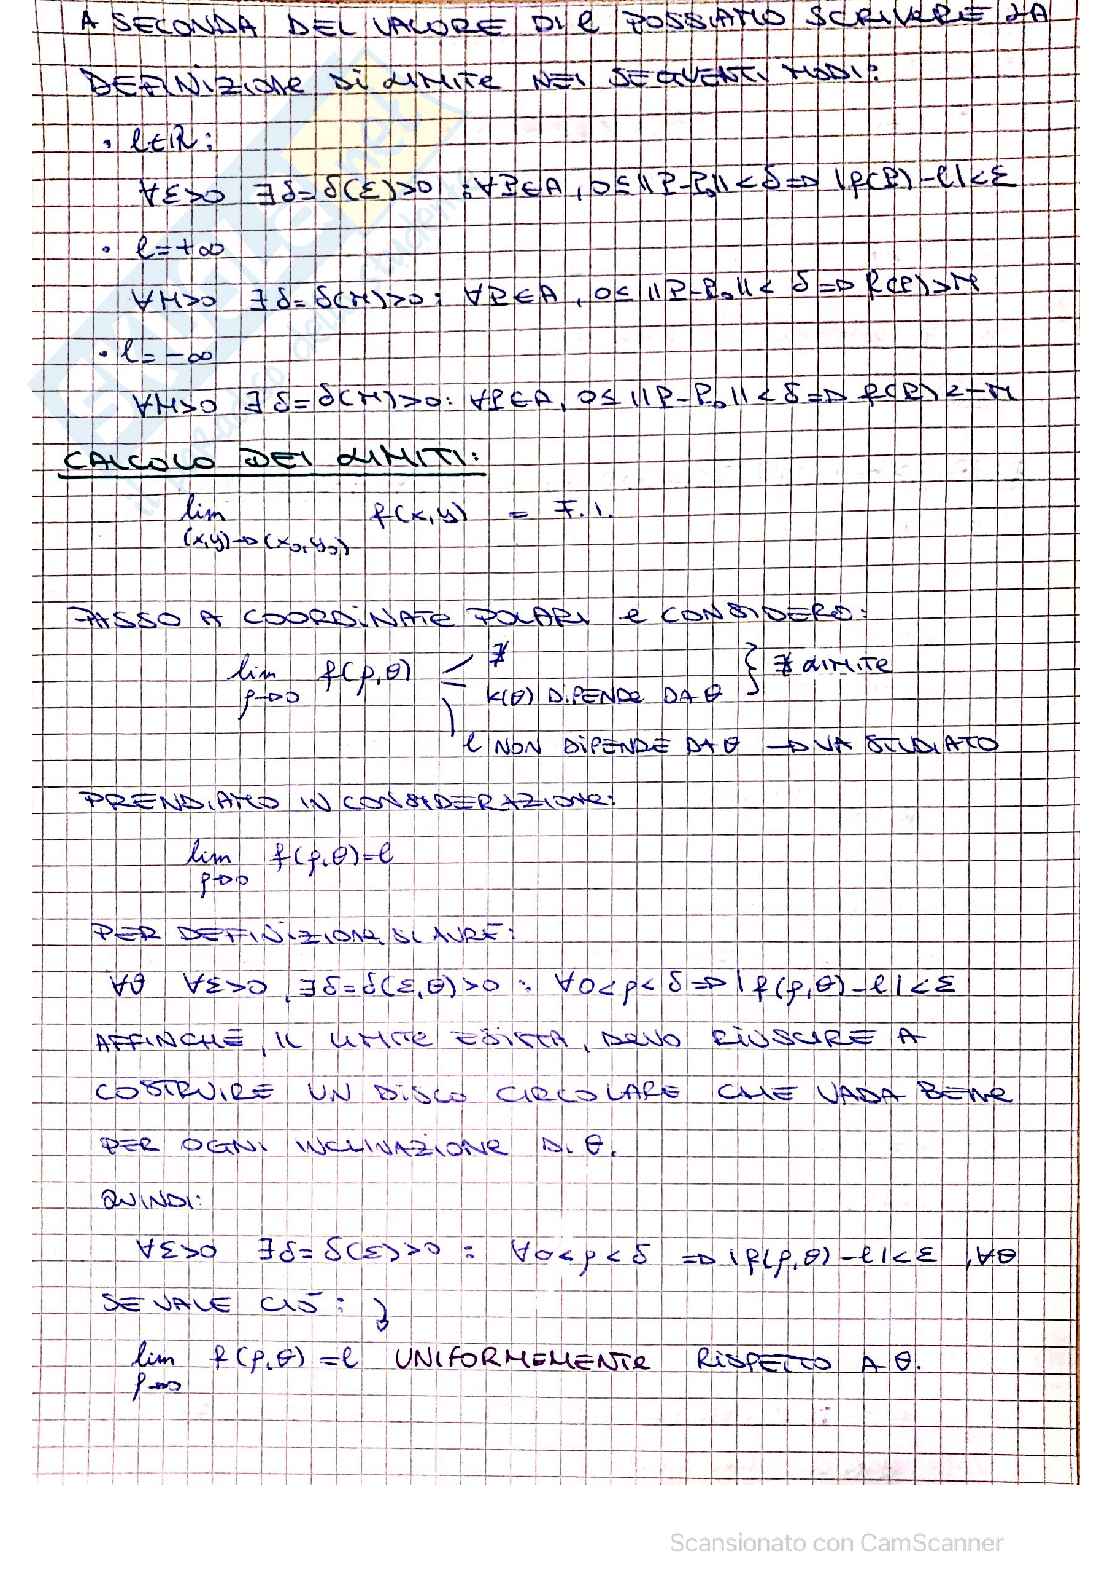 A SECONDA DEL VALORE DI l POSSIAMO SCRIVERE LA
DEFINIZIONE DI LIMITE NEI SEGUENTI MODI:
• l∈ℝ:
∀ε>0 ∃δ=δ(ε)>0 : ∀P∈A, 0≤||P-P₀||<δ ⇒ |f(P)-l|<ε
• l=+∞
∀M>0 ∃δ=δ(M)>0: ∀P∈A, 0≤||P-P₀||<δ ⇒ f(P)>M
• l=-∞
∀M>0 ∃δ=δ(M)>0: ∀P∈A, 0≤||P-P₀||<δ ⇒ f(P)<-M
CALCOLO DEI LIMITI:
lim f(x,y) = F.I.
(x,y)→(x₀,y₀)
PASSO A COORDINATE POLARI e CONSIDERO:
∄
lim f(ρ,θ) } ∄ LIMITE
ρ→0 k(θ) DIPENDE DA θ
l NON DIPENDE DA θ → VA STUDIATO
PRENDIAMO IN CONSIDERAZIONE:
lim f(ρ,θ)=l
ρ→0
PER DEFINIZIONE SI AVRÀ:
∀θ ∀ε>0, ∃δ=δ(ε,θ)>0 : ∀0<ρ<δ ⇒ |f(ρ,θ)-l|<ε
AFFINCHÉ, IL LIMITE ESISTA, DEVO RIUSCIRE A
COSTRUIRE UN DISCO CIRCOLARE CHE VADA BENE
PER OGNI INCLINAZIONE DI θ.
QUINDI:
∀ε>0 ∃δ=δ(ε)>0 : ∀0<ρ<δ ⇒ |f(ρ,θ)-l|<ε, ∀θ
SE VALE CIÒ:
lim f(ρ,θ)=l UNIFORMEMENTE RISPETTO A θ.
ρ→0
Scansionato con CamScanner